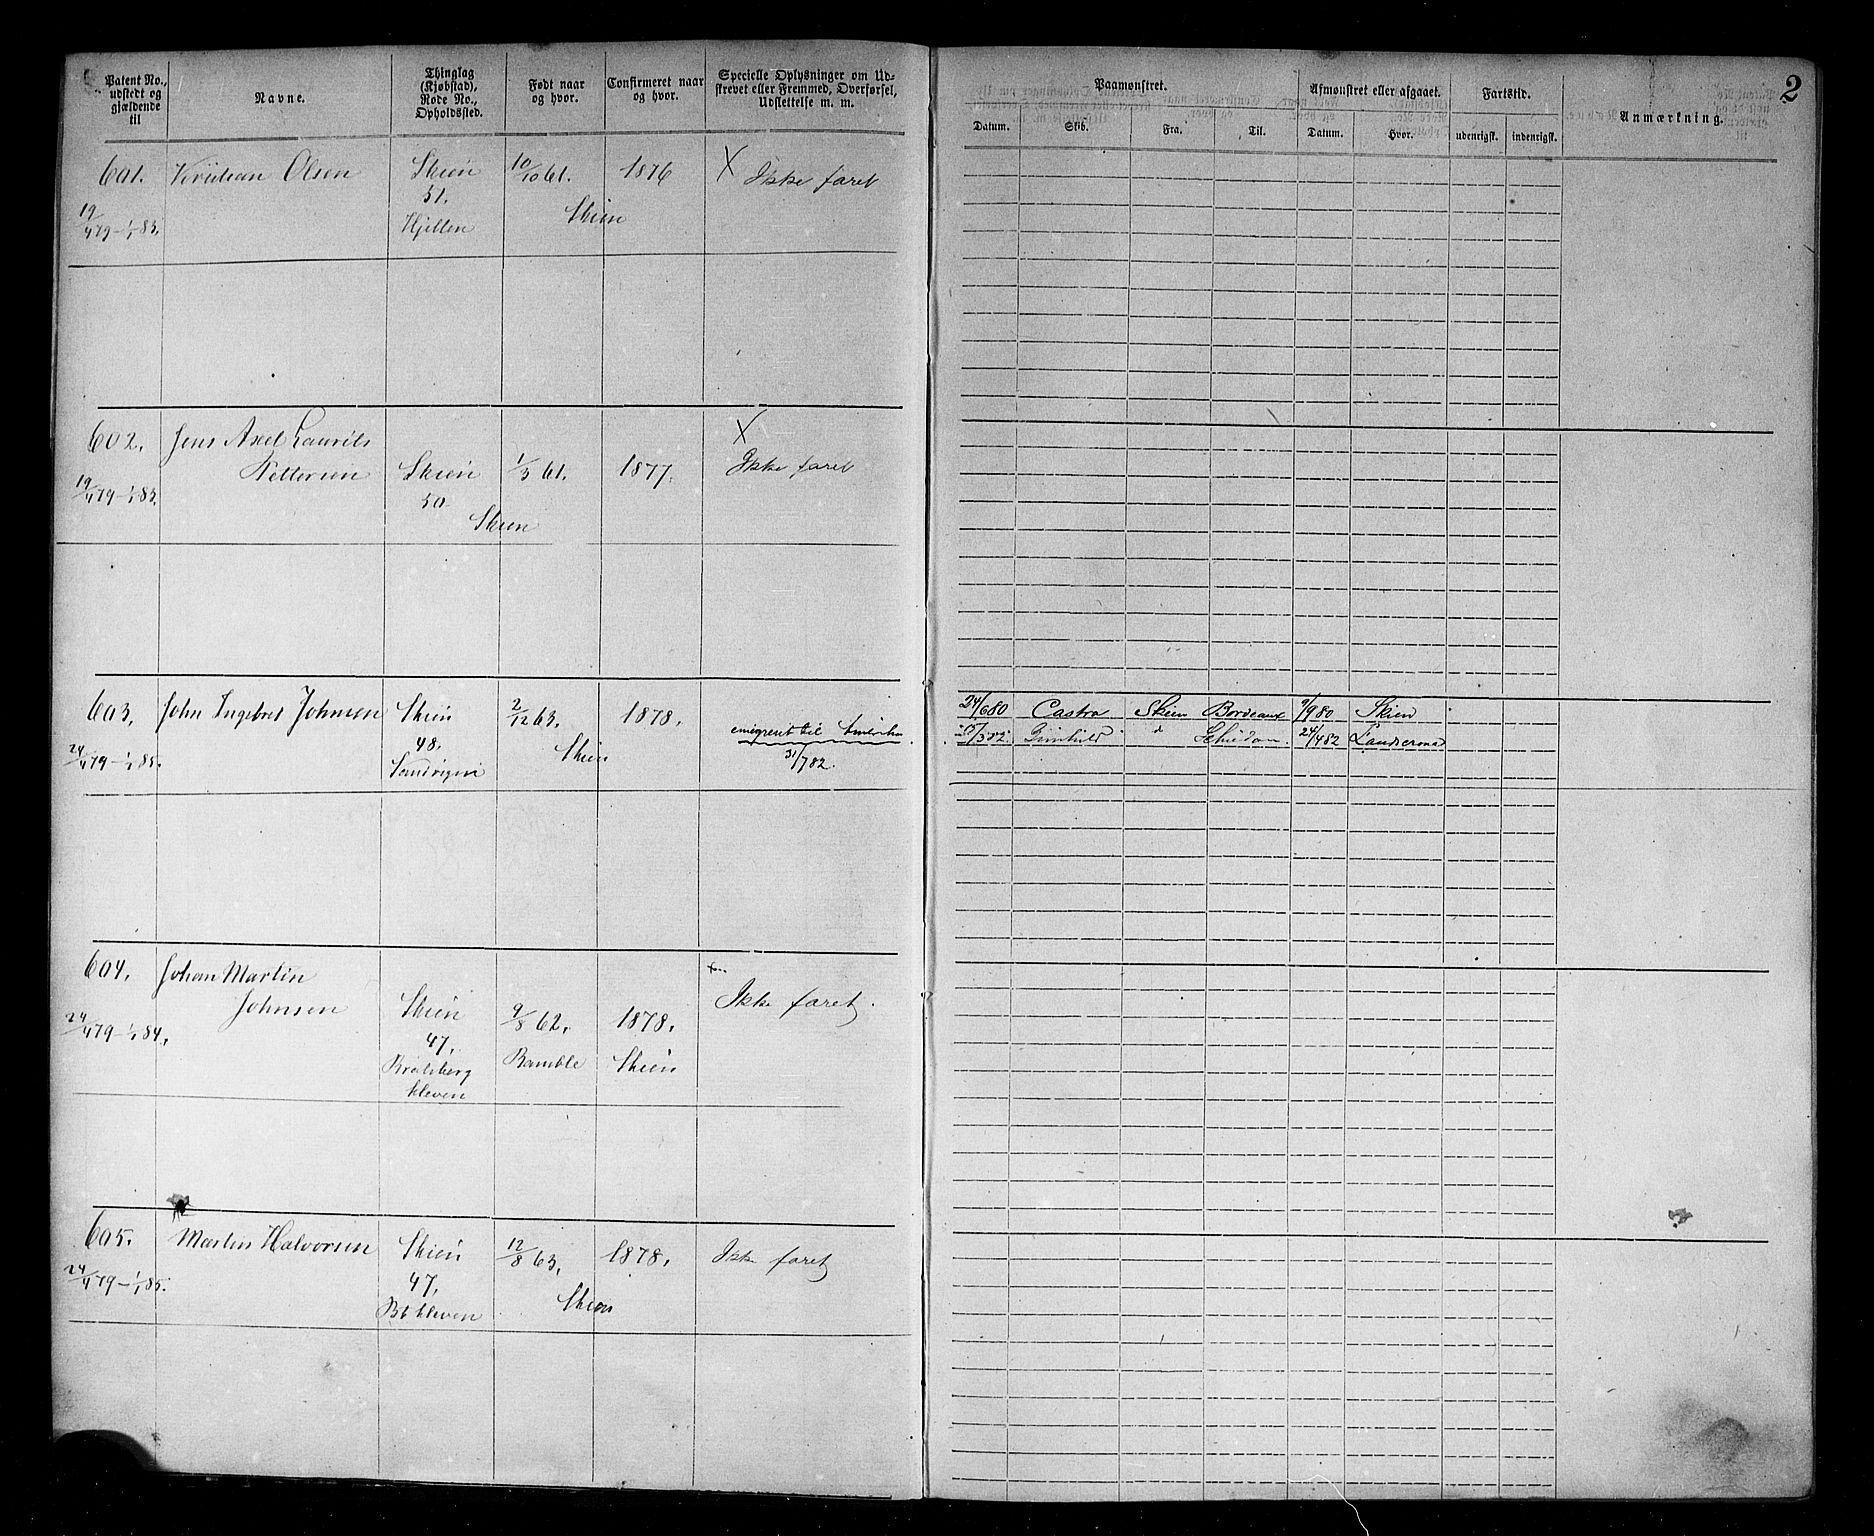 Patent No., udstedt og gjældende til
Navne.
Thinglag (Kjøbstad), Rode No., Opholdssted.
Født naar og hvor.
Confirmeret naar og hvor.
Specielle Oplysninger om Udskrevet eller Fremmed, Overførsel, Udslettelse m. m.
Paamønstret.
Datum. Skib. Fra. Til.
Afmønstret eller afgaaet.
Datum. Hvor.
Fartstid.
udenrigsk. indenrigsk.
Anmærkning.
2
601. Kristian Olsen Skien 10/10 61. 1876 X Ikke faret
51. Skien
19/4 79 – 1/1 83. Hjellen
602. Jens Axel Laurits X
Pettersen Skien 1/3 61. 1877. Ikke faret
19/4 79 – 1/1 83. 50
Skien
603. John Ingebret Johnsen Skien 2/12 63. 1878. emigreret til Amerika 24/6 80 Castro Skien Bordeaux 9/9 80 Skien
48. Skien 31/7 82. Gunhild d Schiedam 24/4 82
24/4 79 – 1/1 85.
604. Johan Martin
Johnsen Skien 9/8 62. 1878. Ikke faret.
24/4 79 – 1/1 84. 47. Bamble Skien
Bratsberg
kleven
605. Martin Halvorsen Skien 12/8 63. 1878. Ikke faret
24/4 79 – 1/1 85. 47. Skien
Bb kleven